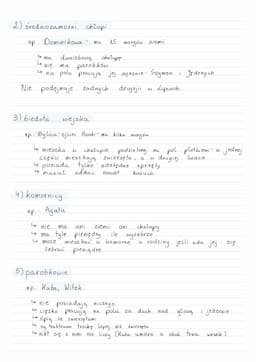 2) średniozamożni chłopi
np. Dominikowa - ma 15 morgów ziemi
↳ ma dwuizbową chałupę
↳ nie ma parobków
↳ na polu pracują jej synowie: Szymon i Jędrzych
Nie podejmuje żadnych decyzji w Lipcach
3) biedota wiejska
np. Bylica - ojciec Hanki - ma kilka morgów
↳ mieszka w chałupie podzielonej na pół płotkiem - w jednej
części mieszkają zwierzęta, a w drugiej ludzie
↳ posiada tylko niezbędne sprzęty
↳ musiał oddać nawet kożuch
4) komornicy
np. Agata
↳ nie ma ani ziemi ani chałupy
↳ ma tyle pieniędzy ile wyżebrze
↳ może mieszkać w komorze u rodziny jeśli uda jej się
zebrać pieniądze
5) parobkowie
np. Kuba, Witek
↳ nie posiadają niczego
↳ ciężko pracują na polu za dach nad głową i jedzenie
↳ śpią ze zwierzętami
↳ są traktowani trochę lepiej niż zwierzęta
↳ nikt się z nimi nie liczy (Kuba umiera a obok trwa wesele)